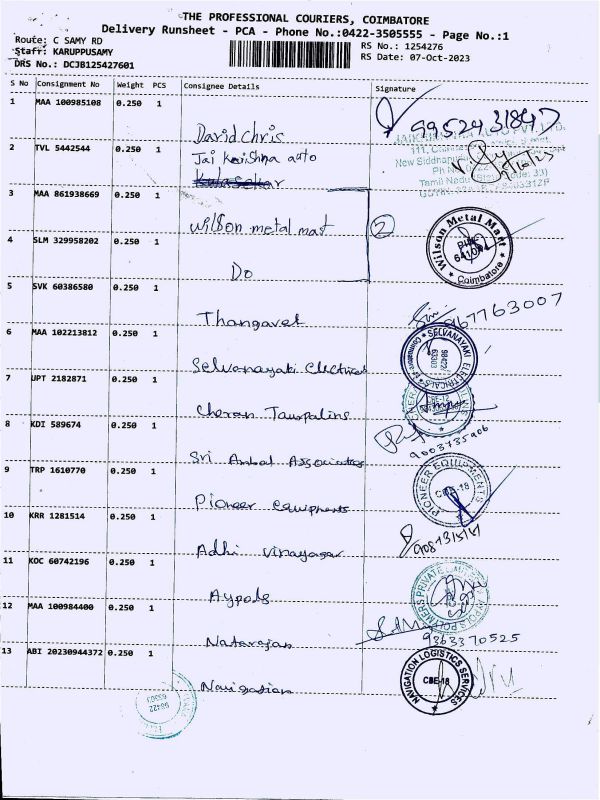 THE PROFESSIONAL COURIERS, COIMBATORE
Delivery Runsheet - PCA - Phone No.:0422-3505555 - Page No.:1
Route: C SAMY RD RS No.: 1254276
Staff: KARUPPUSAMY RS Date: 07-Oct-2023
DRS No.: DCJB125427601
S No Consignment No Weight PCS Consignee Details Signature
1 MAA 100985108 0.250 1
David chris
2 TVL 5442544 0.250 1 Jai Krishna auto
Kulasekar
3 MAA 861938669 0.250 1
Wilson metal mart 2
Wilson Metal Mart
Coimbatore
4 SLM 329958202 0.250 1
Do
5 SVK 60386580 0.250 1
Thangavel
6 MAA 102213812 0.250 1
Selvanayaki Electricals
SELVANAYAKI ELECTRICALS
98422
63303
7 UPT 2182871 0.250 1
Cheran Taurpalins
8 KDI 589674 0.250 1
Sri Ambal Associates
9003735906
9 TRP 1610770 0.250 1
Pioneer equipments
PIONEER EQUIPMENTS
CBE-18
10 KRR 1281514 0.250 1
Adhi vinayagar
11 KOC 60742196 0.250 1
Aypols
12 MAA 100984400 0.250 1
Natarajan
9363370525
13 ABI 20230944372 0.250 1
Navigation
NAVIGATION LOGISTICS SERVICES
CBE-18
98422
63303